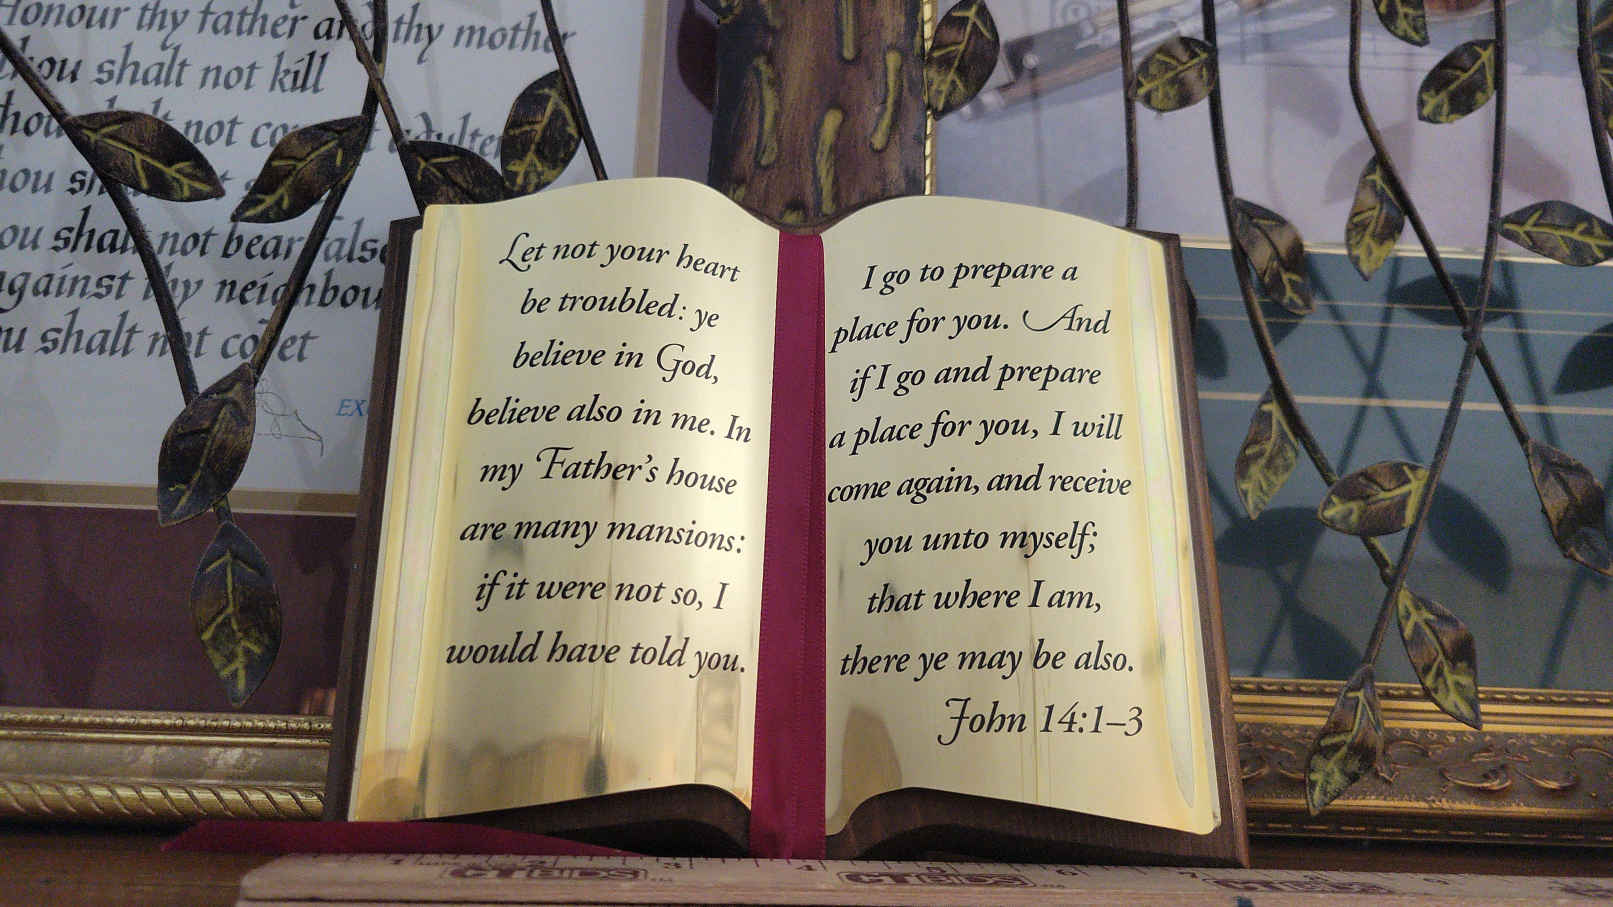 Honour thy father and thy mother
thou shalt not kill
not
not
ou shalt not bear false
against thy neighbou
u shalt not covet
EX
Let not your heart
be troubled: ye
believe in God,
believe also in me. In
my Father's house
are many mansions:
if it were not so, I
would have told you.
I go to prepare a
place for you. And
if I go and prepare
a place for you, I will
come again, and receive
you unto myself;
that where I am,
there ye may be also.
John 14:1–3
1 2 3 4 5 6 7 8 9
CTBIDS CTBIDS CTBIDS